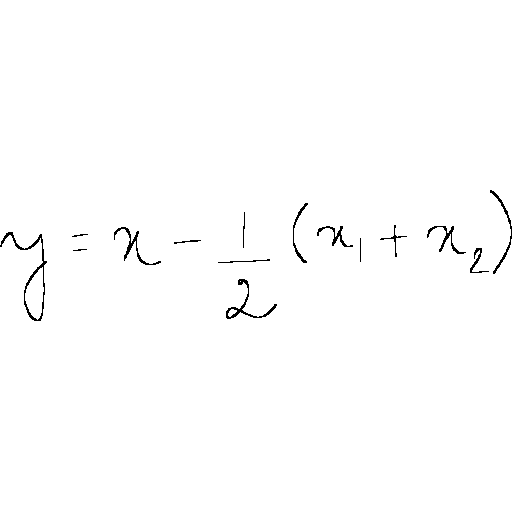 y = x - \frac{1}{2} (x_1 + x_2)